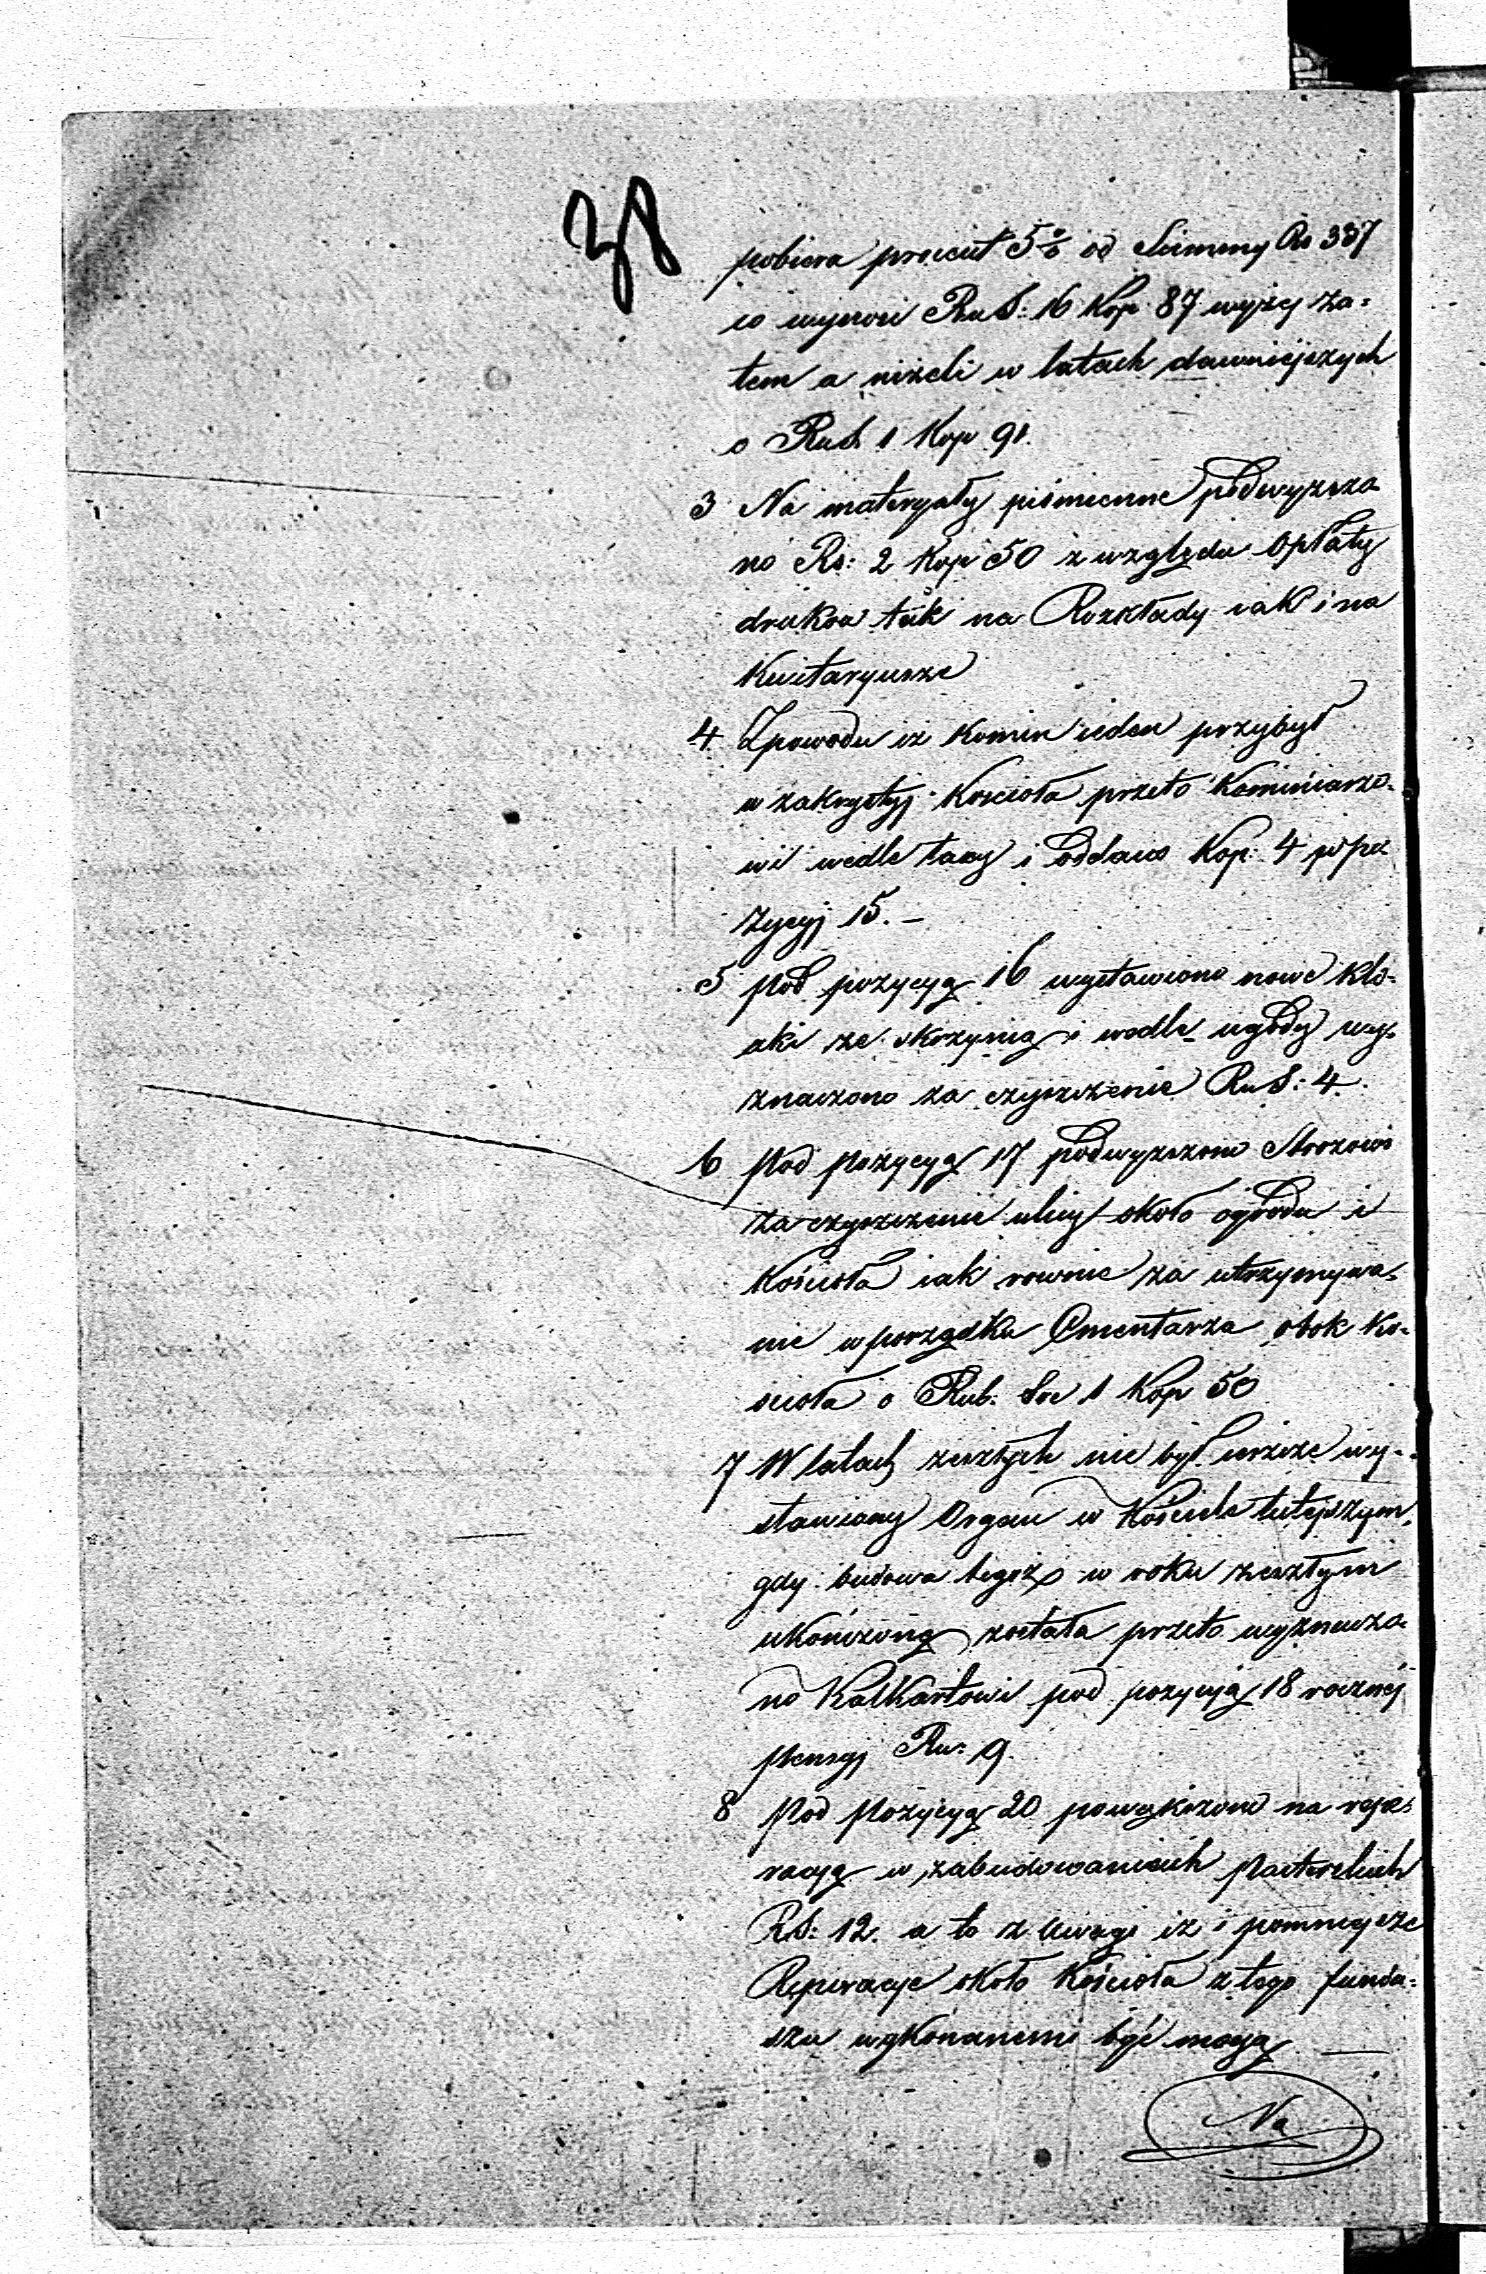 38
pobiera procent 5% od Summy Rs 337
co wynosi RuS: 16 Kop 87 wyżej za=
tem a niżeli w latach dawniejszych
o RuS. 1 Kop 91.
3 Na materyały piśmienne podwyzsza
no Rs: 2 Kop 50 z względu Opłaty
druków tak na Rozkłady iak i na
Kwitaryusze
4. Zpowodu iż Komin ieden przybył
w zakrystyj Koscioła przeto Kominiarzo-
wi wedle taxy i oddano Kop: 4 w po
zycyj 15. —
5 pod pozycyą 16 wystawiono nowe klo-
aki ze skrzynią i wedle ugody wy-
znaczono za czyszczenie RuS: 4.
6 Pod Pozycyą 17 podwyzszono Strozowi
za czyszczenie ulicy około ogrodu i
Kościoła iak rownie za utrzymywa-
nie w porządku Cmentarza obok Ko-
scioła o Rub: Sre 1 Kop 50
7 W latach zeszłych nie był ieszcze wy-
stawiony Organ w Kościele tutejszym,
gdy budowa tegoż w roku zeszłym
ukończoną została przeto wyznacza
no Kalkantowi pod pozycyą 18 rocznéj
Pensyj Rs: 9.
8 Pod Pozycyą 20 powiększono na repa-
racyą w zabudowaniach Pastorskich
RS: 12. a to z Uwagi iż i pomniejsze
Reperacye około Kościoła z tego fundu=
szu wykonanemi być mogą. —
Na